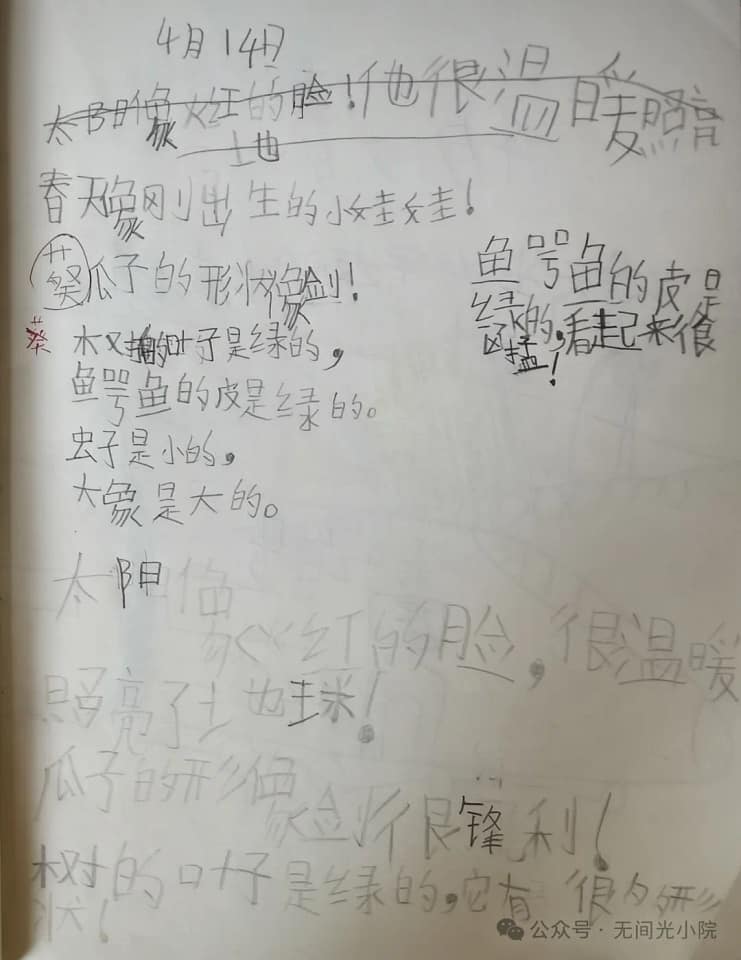 4月14日
太阳像火红的脸！他很温暖照亮
土也
春天像刚出生的小娃娃！
葵瓜子的形状像剑！
葵
树的叶子是绿的，
鱼咢鱼的皮是绿的。
虫子是小的，
大象是大的。
鱼咢鱼的皮是
绿的，看起来很
凶猛！
太阳像
火红的脸，很温暖
照亮了土也球！
瓜子的形像
剑很锋利！
树的叶子是绿的，它有很多形
状！
公众号·无间光小院